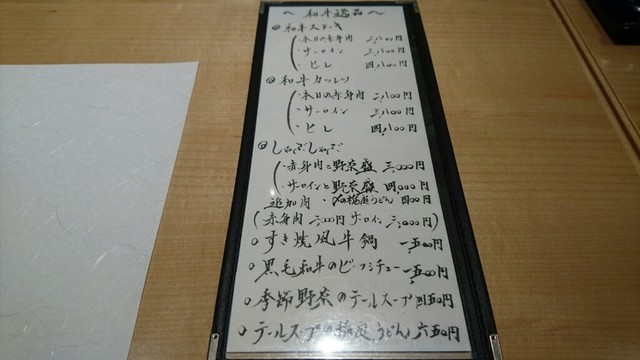 ～ 和牛逸品 ～
◎ 和牛ステーキ
本日の赤身肉 二,八〇〇円
サーロイン 三,八〇〇円
ヒレ 四,八〇〇円
◎ 和牛カツレツ
本日の赤身肉 二,八〇〇円
サーロイン 三,八〇〇円
ヒレ 四,八〇〇円
◎ しゃぶしゃぶ
赤身肉と野菜盛 三,〇〇〇円
サーロインと野菜盛 四,〇〇〇円
追加肉 ・ 稲庭うどん 四〇〇円
(赤身肉 二,〇〇〇円 サーロイン 三,〇〇〇円)
○ すき焼風牛鍋 一,五〇〇円
○ 黒毛和牛のビーフシチュー 一,五〇〇円
○ 季節野菜のテールスープ 四五〇円
○ テールスープの稲庭うどん 六五〇円